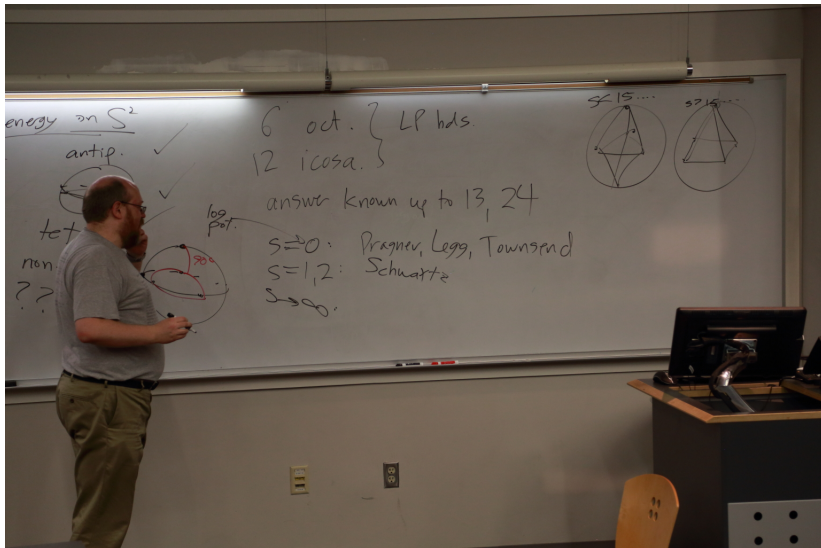 energy on S²
antip.
tet
non
??
log
pot.
90°
6 oct. } LP bds.
12 icosa.
answer known up to 13, 24
s=0: Dragnev, Legg, Townsend
s=1,2: Schwartz
s→∞.
s<15....
s>15....